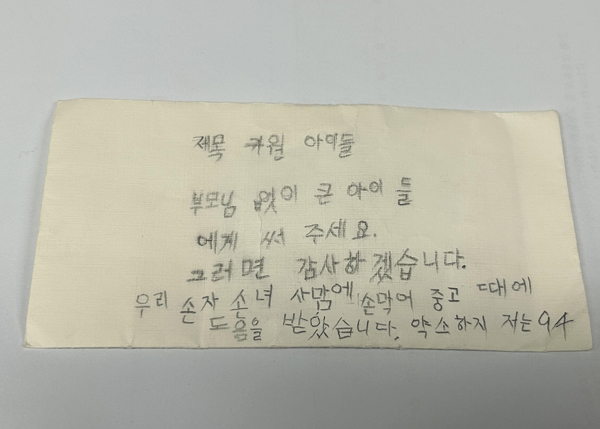 제목 카월 아이들
부모님 없이 큰 아이들
에게 써 주세요.
그러면 감사하겠습니다.
우리 손자 손녀 사맘에 손막어 중고 때에
도음을 받았습니다, 약소하지 저는 94